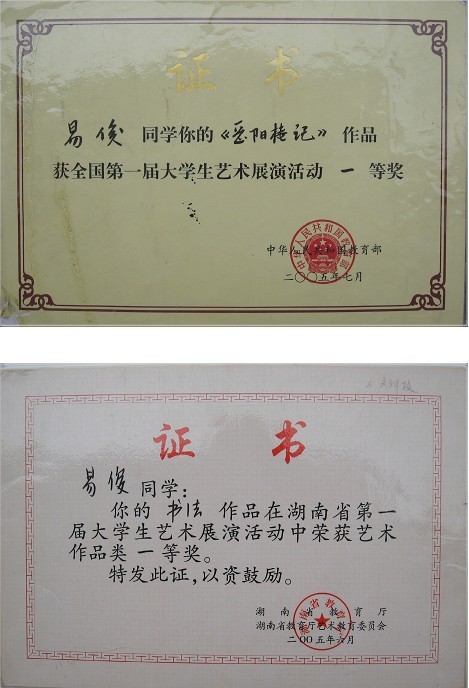 证书
易俊 同学你的《岳阳楼记》 作品
获全国第一届大学生艺术展演活动 一 等奖
中华人民共和国教育部
二〇〇五年七月
证书
易俊 同学:
你的 书法 作品在湖南省第一
届大学生艺术展演活动中荣获艺术
作品类 一 等奖。
特发此证,以资鼓励。
湖南省教育厅
湖南省教育厅艺术教育委员会
二〇〇五年六月